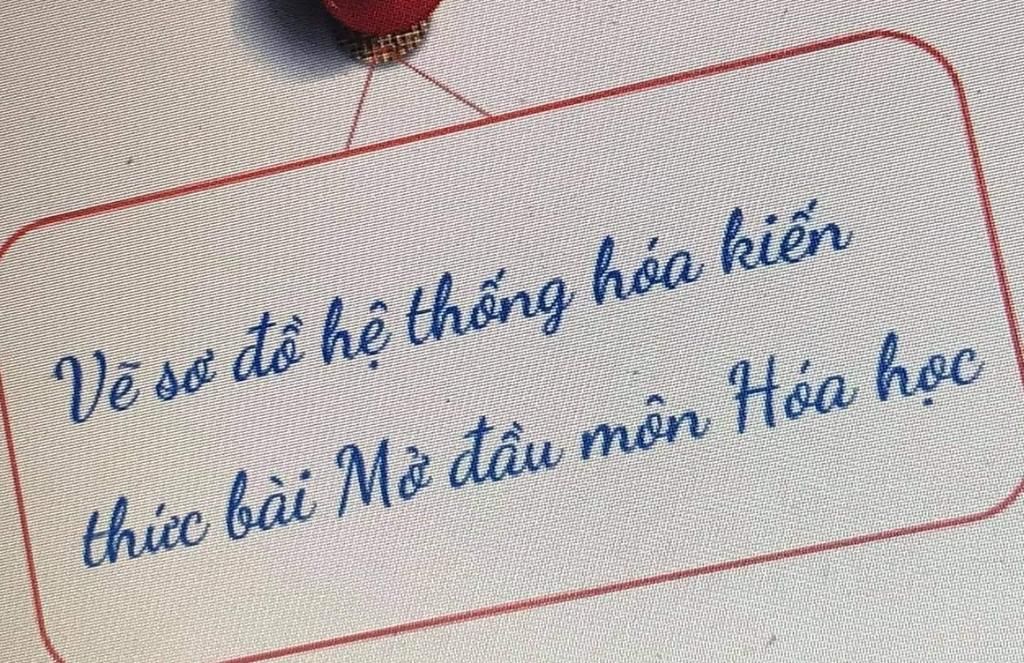 Vẽ sơ đồ hệ thống hóa kiến
thức bài Mở đầu môn Hóa học